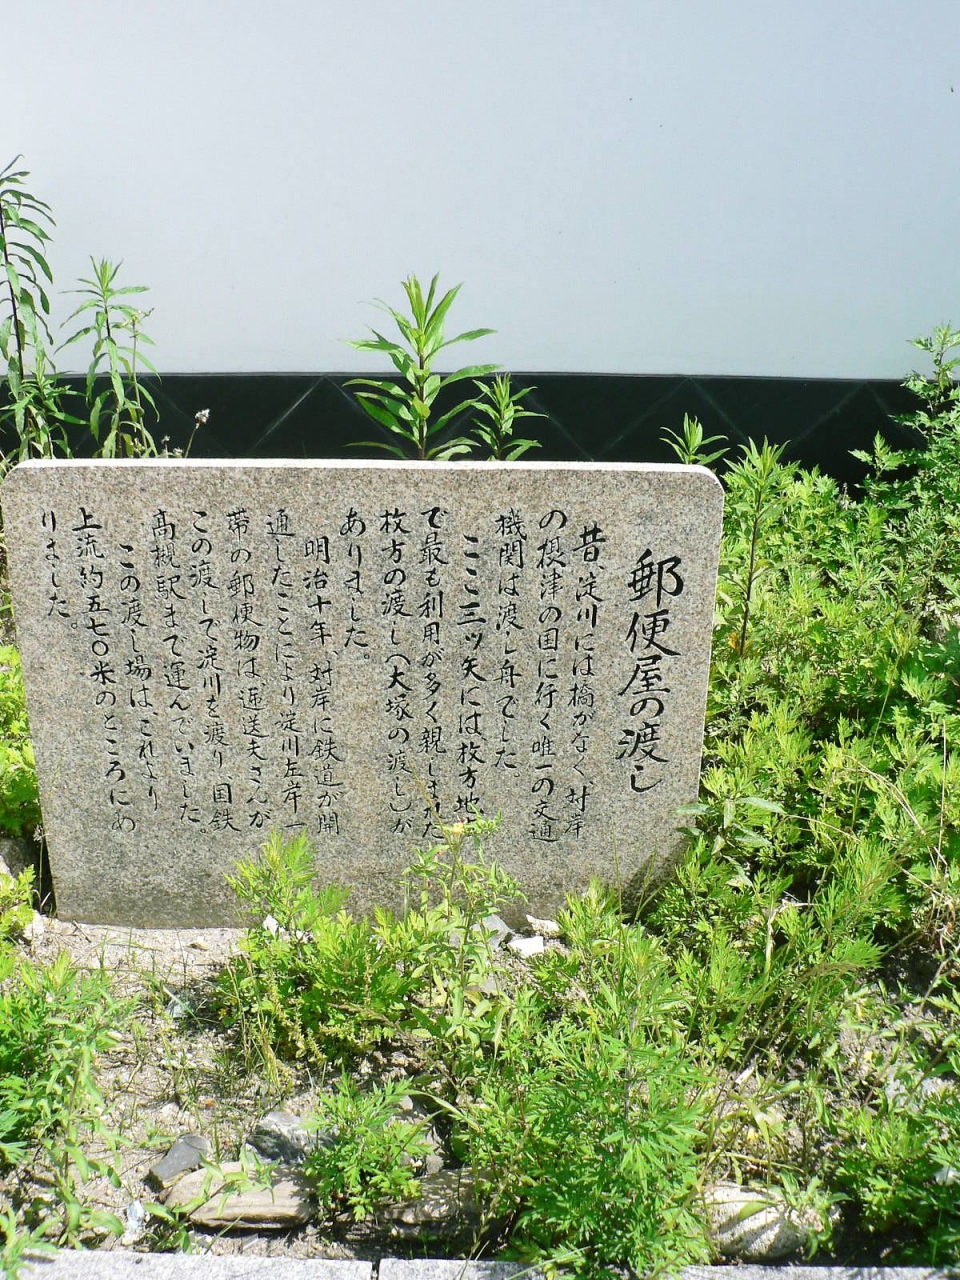 郵便屋の渡し
昔、淀川には橋がなく、対岸
の摂津の国に行く唯一の交通
機関は渡し舟でした。
ここ三ッ矢には、枚方地
で最も利用が多く親しまれた
枚方の渡し(大塚の渡し)が
ありました。
明治十年、対岸に鉄道が開
通したことにより淀川左岸一
帯の郵便物は逓送夫さんが
この渡しで淀川を渡り、国鉄
高槻駅まで運んでいました。
この渡し場は、これより
上流約五七〇米のところにあ
りました。